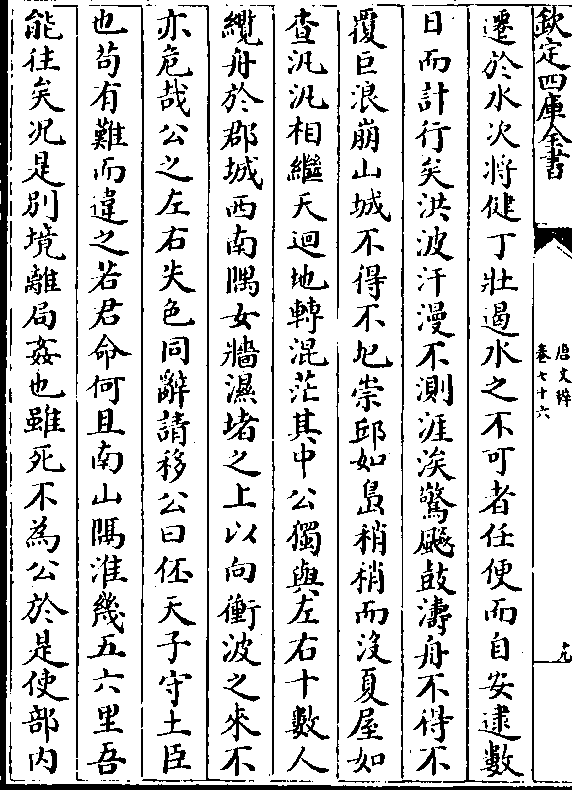 欽定四庫全書
唐文粹
卷七十六
十九
遷於水次將健丁壯遏水之不可者任便而自安逮數
日而計行矣洪波汗漫不測涯涘驚飈鼓濤舟不得不
覆巨浪崩山城不得不圮崇邱如島稍稍而沒夏屋如
查汎汎相繼天迴地轉混茫其中公獨與左右十數人
纜舟於郡城西南隅女牆濕堵之上以向衝波之來不
亦危哉公之左右失色同辭請移公曰伾天子守土臣
也苟有難而違之若君命何且南山隅淮幾五六里吾
能往矣况是別境離局姦也雖死不為公於是使部內